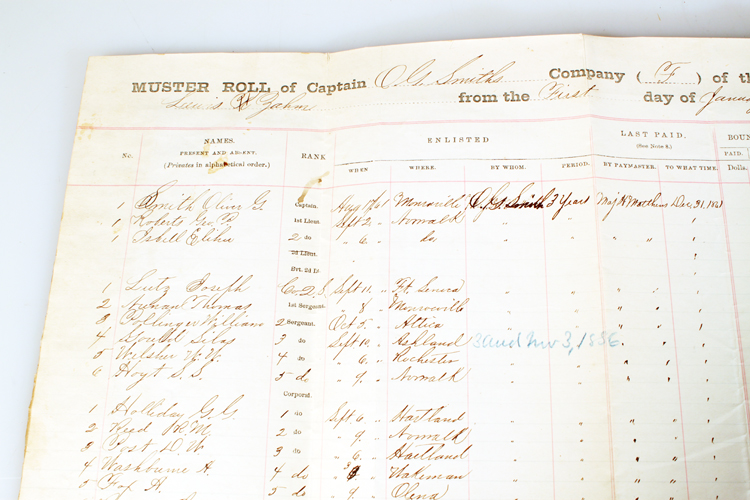 MUSTER ROLL of Captain O. G. Smiths Company ( F ) of th
Lewis Zahm from the First day of Janu
No. NAMES. PRESENT AND ABSENT. (Privates in alphabetical order.) RANK ENLISTED LAST PAID. (See Note 8.) BOUN
WHEN WHERE. BY WHOM. PERIOD. BY PAYMASTER. TO WHAT TIME. PAID. Dolls.
1 Smith Oliver G. Captain. Aug 17 61 Monroeville O. G. Smith 3 Years Maj Matthews Dec, 31, 1861
1 Roberts Geo. P 1st Lieut Sept 2 " Norwalk " " " " "
1 Isbell Elihu 2 do " 6 " do, " " " " "
2d Lieut.
Bvt. 2d Lt
1 Lutz Joseph Co. Q. S. Sept 11 " Ft. Seneca
2 Ayman Thomas 1st Sergeant. " 8 " Monroeville
3 Bollinger William 2 Sergeant. Oct 5 " Attica
4 Gould Silas 3 do Sept 10 " Ashland 3 and Nov 3, 1886
5 Wilsher W. W. 4 do " 6 " Rochester
6 Hoyt S. S. 5 do " 9 " Norwalk
Corporal.
1 Holliday G. G. 1 do Sept 6 " Hartland
2 Read R. M. 2 do " 9 " Norwalk
3 Post D. W. 3 do " 6 " Hartland
4 Washburne A. 4 do " " Wakeman
5 Fox A. 5 do " 9 " Olena